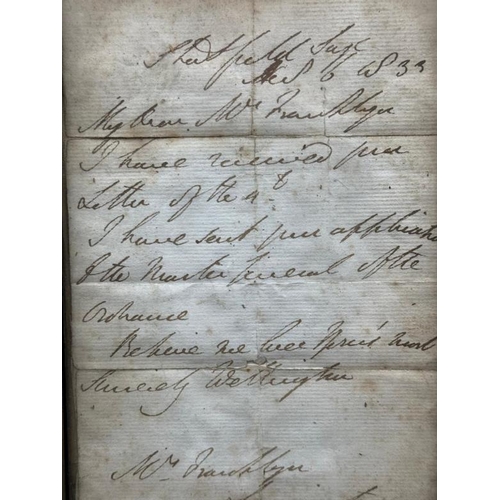 Stratfield Saye
6 1833
My Dear Mrs. Franklyn
I have received your
Letter of the 4t
I have sent your application
to the Master General of the
Ordnance
Believe me Ever Yours most
Sincerely Wellington
Mrs. Franklyn